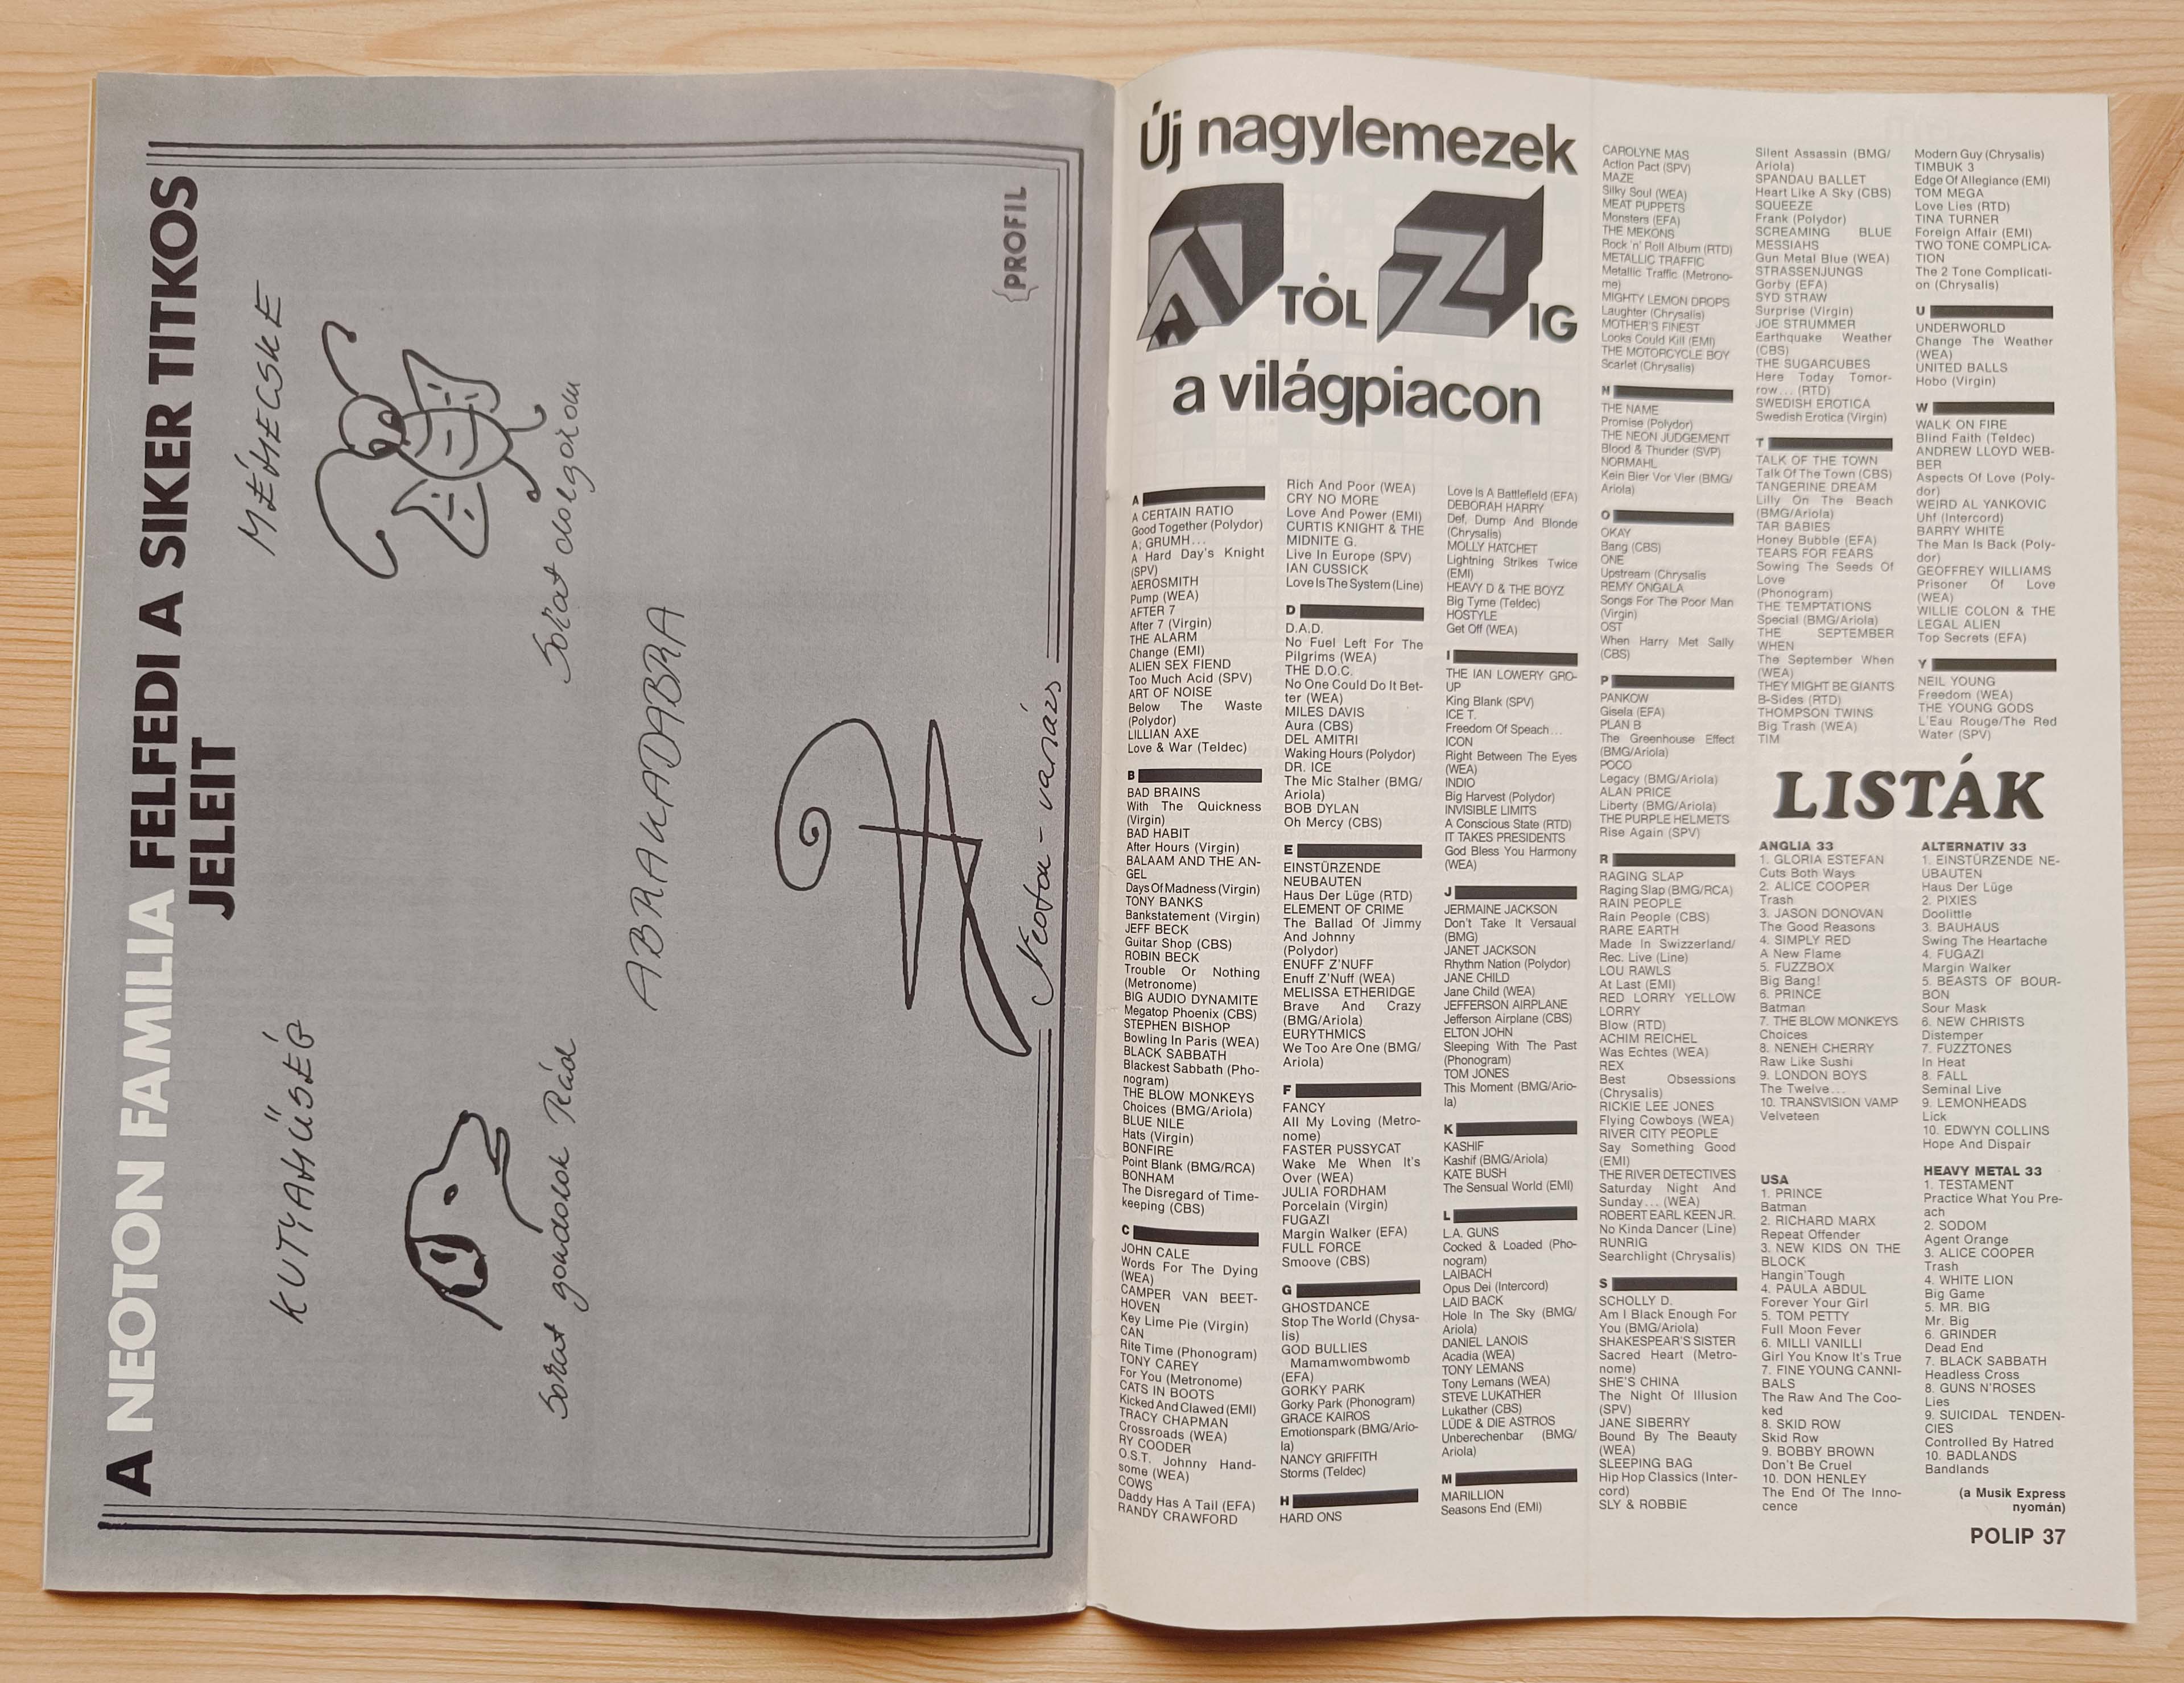 A NEOTON FAMILIA FELFEDI A SIKER TITKOS
JELEIT
KUTYAHŰSÉG
MÉHECSKE
Sokat gondolok Rád
Sokat dolgozom
ABRAKADABRA
Neoton-varázs
PROFIL
Új nagylemezek
A TÓL Z IG
a világpiacon
A
A CERTAIN RATIO
Good Together (Polydor)
A; GRUMH...
A Hard Day's Knight
(SPV)
AEROSMITH
Pump (WEA)
AFTER 7
After 7 (Virgin)
THE ALARM
Change (EMI)
ALIEN SEX FIEND
Too Much Acid (SPV)
ART OF NOISE
Below The Waste
(Polydor)
LILLIAN AXE
Love & War (Teldec)
B
BAD BRAINS
With The Quickness
(Virgin)
BAD HABIT
After Hours (Virgin)
BALAAM AND THE AN-
GEL
Days Of Madness (Virgin)
TONY BANKS
Bankstatement (Virgin)
JEFF BECK
Guitar Shop (CBS)
ROBIN BECK
Trouble Or Nothing
(Metronome)
BIG AUDIO DYNAMITE
Megatop Phoenix (CBS)
STEPHEN BISHOP
Bowling In Paris (WEA)
BLACK SABBATH
Blackest Sabbath (Pho-
nogram)
THE BLOW MONKEYS
Choices (BMG/Ariola)
BLUE NILE
Hats (Virgin)
BONFIRE
Point Blank (BMG/RCA)
BONHAM
The Disregard of Time-
keeping (CBS)
C
JOHN CALE
Words For The Dying
(WEA)
CAMPER VAN BEET-
HOVEN
Key Lime Pie (Virgin)
CAN
Rite Time (Phonogram)
TONY CAREY
For You (Metronome)
CATS IN BOOTS
Kicked And Clawed (EMI)
TRACY CHAPMAN
Crossroads (WEA)
RY COODER
O.S.T. Johnny Hand-
some (WEA)
COWS
Daddy Has A Tail (EFA)
RANDY CRAWFORD
Rich And Poor (WEA)
CRY NO MORE
Love And Power (EMI)
CURTIS KNIGHT & THE
MIDNITE G.
Live In Europe (SPV)
IAN CUSSICK
Love Is The System (Line)
D
D.A.D.
No Fuel Left For The
Pilgrims (WEA)
THE D.O.C.
No One Could Do It Bet-
ter (WEA)
MILES DAVIS
Aura (CBS)
DEL AMITRI
Waking Hours (Polydor)
DR. ICE
The Mic Stalher (BMG/
Ariola)
BOB DYLAN
Oh Mercy (CBS)
E
EINSTÜRZENDE
NEUBAUTEN
Haus Der Lüge (RTD)
ELEMENT OF CRIME
The Ballad Of Jimmy
And Johnny
(Polydor)
ENUFF Z'NUFF
Enuff Z'Nuff (WEA)
MELISSA ETHERIDGE
Brave And Crazy
(BMG/Ariola)
EURYTHMICS
We Too Are One (BMG/
Ariola)
F
FANCY
All My Loving (Metro-
nome)
FASTER PUSSYCAT
Wake Me When It's
Over (WEA)
JULIA FORDHAM
Porcelain (Virgin)
FUGAZI
Margin Walker (EFA)
FULL FORCE
Smoove (CBS)
G
GHOSTDANCE
Stop The World (Chysa-
lis)
GOD BULLIES
Mamamwombwomb
(EFA)
GORKY PARK
Gorky Park (Phonogram)
GRACE KAIROS
Emotionspark (BMG/Ario-
la)
NANCY GRIFFITH
Storms (Teldec)
H
HARD ONS
Love Is A Battlefield (EFA)
DEBORAH HARRY
Def, Dump And Blonde
(Chrysalis)
MOLLY HATCHET
Lightning Strikes Twice
(EMI)
HEAVY D & THE BOYZ
Big Tyme (Teldec)
HOSTYLE
Get Off (WEA)
I
THE IAN LOWERY GRO-
UP
King Blank (SPV)
ICE T.
Freedom Of Speach...
ICON
Right Between The Eyes
(WEA)
INDIO
Big Harvest (Polydor)
INVISIBLE LIMITS
A Conscious State (RTD)
IT TAKES PRESIDENTS
God Bless You Harmony
(WEA)
J
JERMAINE JACKSON
Don't Take It Versaual
(BMG)
JANET JACKSON
Rhythm Nation (Polydor)
JANE CHILD
Jane Child (WEA)
JEFFERSON AIRPLANE
Jefferson Airplane (CBS)
ELTON JOHN
Sleeping With The Past
(Phonogram)
TOM JONES
This Moment (BMG/Ario-
la)
K
KASHIF
Kashif (BMG/Ariola)
KATE BUSH
The Sensual World (EMI)
L
L.A. GUNS
Cocked & Loaded (Pho-
nogram)
LAIBACH
Opus Dei (Intercord)
LAID BACK
Hole In The Sky (BMG/
Ariola)
DANIEL LANOIS
Acadia (WEA)
TONY LEMANS
Tony Lemans (WEA)
STEVE LUKATHER
Lukather (CBS)
LÜDE & DIE ASTROS
Unberechenbar (BMG/
Ariola)
M
MARILLION
Seasons End (EMI)
CAROLYNE MAS
Action Pact (SPV)
MAZE
Silky Soul (WEA)
MEAT PUPPETS
Monsters (EFA)
THE MEKONS
Rock 'n' Roll Album (RTD)
METALLIC TRAFFIC
Metallic Traffic (Metrono-
me)
MIGHTY LEMON DROPS
Laughter (Chrysalis)
MOTHER'S FINEST
Looks Could Kill (EMI)
THE MOTORCYCLE BOY
Scarlet (Chrysalis)
N
THE NAME
Promise (Polydor)
THE NEON JUDGEMENT
Blood & Thunder (SVP)
NORMAHL
Kein Bier Vor Vier (BMG/
Ariola)
O
OKAY
Bang (CBS)
ONE
Upstream (Chrysalis
REMY ONGALA
Songs For The Poor Man
(Virgin)
OST
When Harry Met Sally
(CBS)
P
PANKOW
Gisela (EFA)
PLAN B
The Greenhouse Effect
(BMG/Ariola)
POCO
Legacy (BMG/Ariola)
ALAN PRICE
Liberty (BMG/Ariola)
THE PURPLE HELMETS
Rise Again (SPV)
R
RAGING SLAP
Raging Slap (BMG/RCA)
RAIN PEOPLE
Rain People (CBS)
RARE EARTH
Made In Swizzerland/
Rec. Live (Line)
LOU RAWLS
At Last (EMI)
RED LORRY YELLOW
LORRY
Blow (RTD)
ACHIM REICHEL
Was Echtes (WEA)
REX
Best Obsessions
(Chrysalis)
RICKIE LEE JONES
Flying Cowboys (WEA)
RIVER CITY PEOPLE
Say Something Good
(EMI)
THE RIVER DETECTIVES
Saturday Night And
Sunday... (WEA)
ROBERT EARL KEEN JR.
No Kinda Dancer (Line)
RUNRIG
Searchlight (Chrysalis)
S
SCHOLLY D.
Am I Black Enough For
You (BMG/Ariola)
SHAKESPEAR'S SISTER
Sacred Heart (Metro-
nome)
SHE'S CHINA
The Night Of Illusion
(SPV)
JANE SIBERRY
Bound By The Beauty
(WEA)
SLEEPING BAG
Hip Hop Classics (Inter-
cord)
SLY & ROBBIE
Silent Assassin (BMG/
Ariola)
SPANDAU BALLET
Heart Like A Sky (CBS)
SQUEEZE
Frank (Polydor)
SCREAMING BLUE
MESSIAHS
Gun Metal Blue (WEA)
STRASSENJUNGS
Gorby (EFA)
SYD STRAW
Surprise (Virgin)
JOE STRUMMER
Earthquake Weather
(CBS)
THE SUGARCUBES
Here Today Tomor-
row... (RTD)
SWEDISH EROTICA
Swedish Erotica (Virgin)
T
TALK OF THE TOWN
Talk Of The Town (CBS)
TANGERINE DREAM
Lilly On The Beach
(BMG/Ariola)
TAR BABIES
Honey Bubble (EFA)
TEARS FOR FEARS
Sowing The Seeds Of
Love
(Phonogram)
THE TEMPTATIONS
Special (BMG/Ariola)
THE SEPTEMBER
WHEN
The September When
(WEA)
THEY MIGHT BE GIANTS
B-Sides (RTD)
THOMPSON TWINS
Big Trash (WEA)
TIM
Modern Guy (Chrysalis)
TIMBUK 3
Edge Of Allegiance (EMI)
TOM MEGA
Love Lies (RTD)
TINA TURNER
Foreign Affair (EMI)
TWO TONE COMPLICA-
TION
The 2 Tone Complicati-
on (Chrysalis)
U
UNDERWORLD
Change The Weather
(WEA)
UNITED BALLS
Hobo (Virgin)
W
WALK ON FIRE
Blind Faith (Teldec)
ANDREW LLOYD WEB-
BER
Aspects Of Love (Poly-
dor)
WEIRD AL YANKOVIC
Uhf (Intercord)
BARRY WHITE
The Man Is Back (Poly-
dor)
GEOFFREY WILLIAMS
Prisoner Of Love
(WEA)
WILLIE COLON & THE
LEGAL ALIEN
Top Secrets (EFA)
Y
NEIL YOUNG
Freedom (WEA)
THE YOUNG GODS
L'Eau Rouge/The Red
Water (SPV)
LISTÁK
ANGLIA 33
1. GLORIA ESTEFAN
Cuts Both Ways
2. ALICE COOPER
Trash
3. JASON DONOVAN
The Good Reasons
4. SIMPLY RED
A New Flame
5. FUZZBOX
Big Bang!
6. PRINCE
Batman
7. THE BLOW MONKEYS
Choices
8. NENEH CHERRY
Raw Like Sushi
9. LONDON BOYS
The Twelve...
10. TRANSVISION VAMP
Velveteen
USA
1. PRINCE
Batman
2. RICHARD MARX
Repeat Offender
3. NEW KIDS ON THE
BLOCK
Hangin'Tough
4. PAULA ABDUL
Forever Your Girl
5. TOM PETTY
Full Moon Fever
6. MILLI VANILLI
Girl You Know It's True
7. FINE YOUNG CANNI-
BALS
The Raw And The Coo-
ked
8. SKID ROW
Skid Row
9. BOBBY BROWN
Don't Be Cruel
10. DON HENLEY
The End Of The Inno-
cence
ALTERNATIV 33
1. EINSTÜRZENDE NE-
UBAUTEN
Haus Der Lüge
2. PIXIES
Doolittle
3. BAUHAUS
Swing The Heartache
4. FUGAZI
Margin Walker
5. BEASTS OF BOUR-
BON
Sour Mask
6. NEW CHRISTS
Distemper
7. FUZZTONES
In Heat
8. FALL
Seminal Live
9. LEMONHEADS
Lick
10. EDWYN COLLINS
Hope And Dispair
HEAVY METAL 33
1. TESTAMENT
Practice What You Pre-
ach
2. SODOM
Agent Orange
3. ALICE COOPER
Trash
4. WHITE LION
Big Game
5. MR. BIG
Mr. Big
6. GRINDER
Dead End
7. BLACK SABBATH
Headless Cross
8. GUNS N'ROSES
Lies
9. SUICIDAL TENDEN-
CIES
Controlled By Hatred
10. BADLANDS
Bandlands
(a Musik Express
nyomán)
POLIP 37